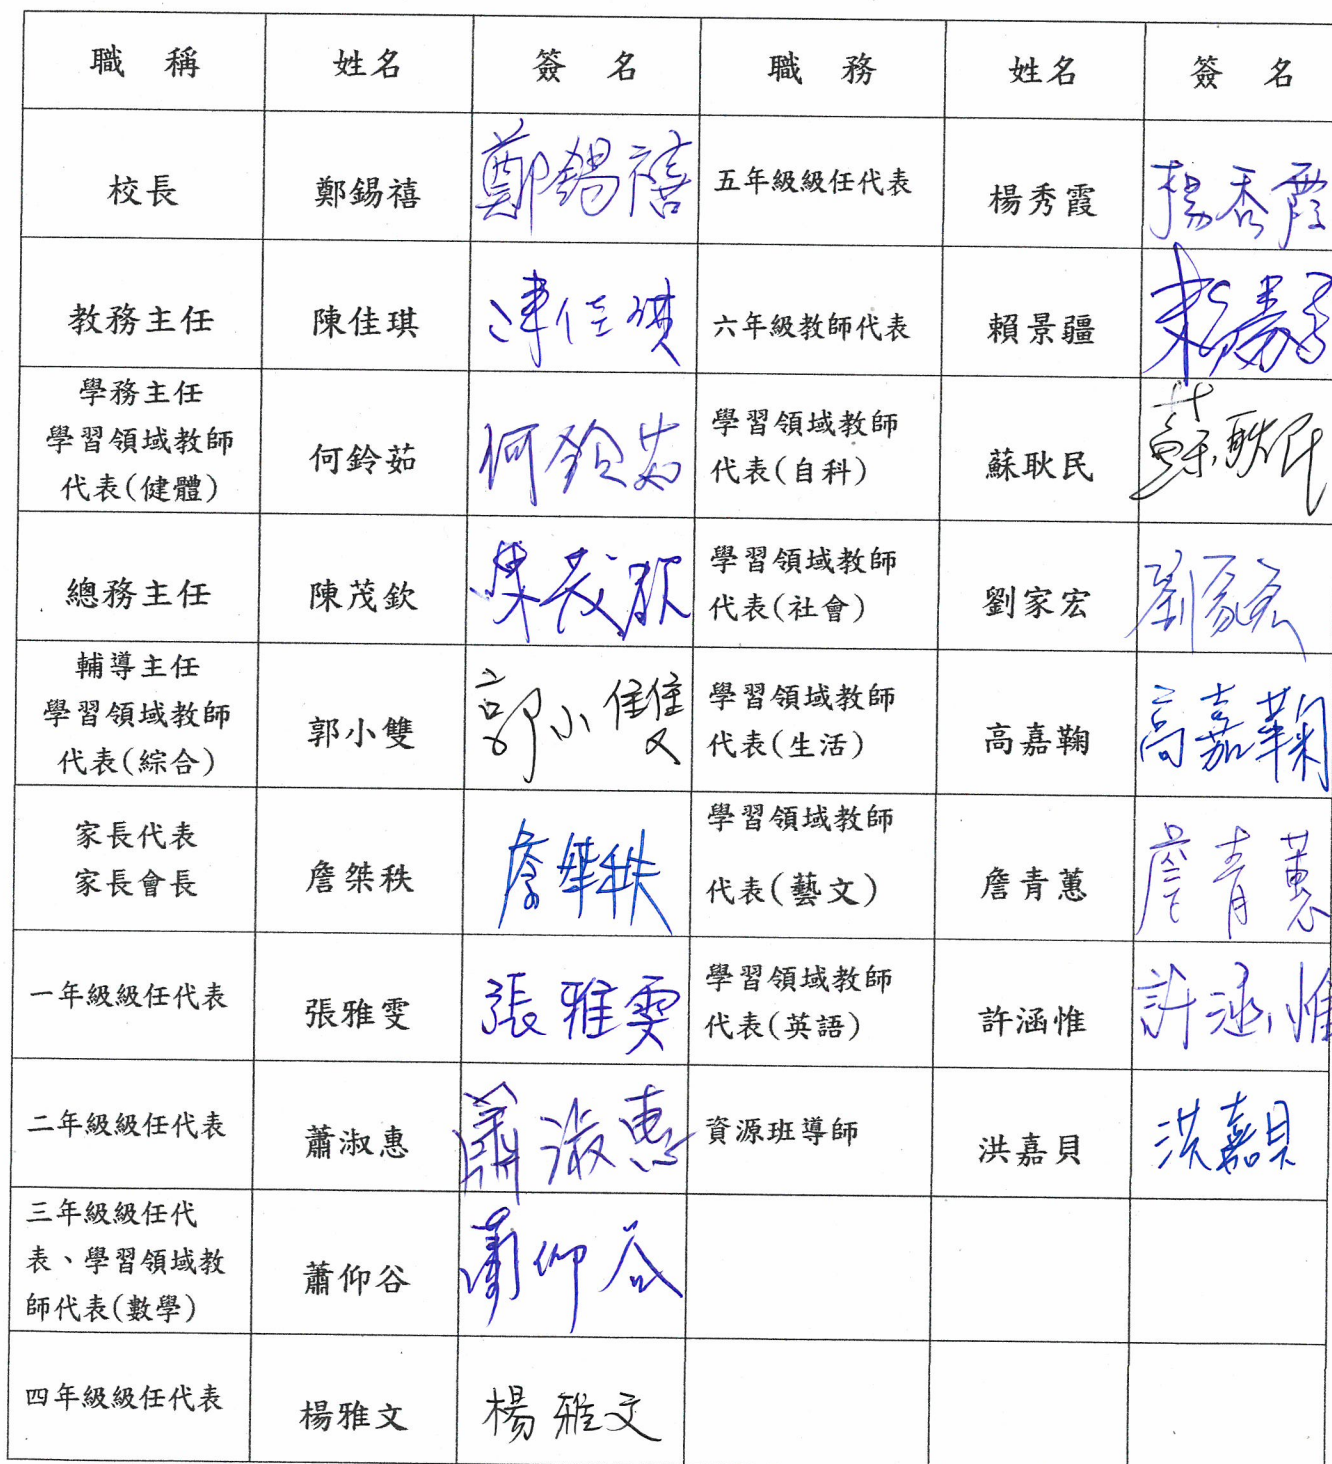 職 稱 姓名 簽 名 職 務 姓名 簽 名
校長 鄭錫禧 鄭錫禧 五年級級任代表 楊秀霞 楊秀霞
教務主任 陳佳琪 陳佳琪 六年級教師代表 賴景疆
學務主任
學習領域教師
代表(健體)
何鈴茹 何鈴茹
學習領域教師
代表(自科)
蘇耿民 蘇耿民
總務主任 陳茂欽 陳茂欽
學習領域教師
代表(社會)
劉家宏 劉家宏
輔導主任
學習領域教師
代表(綜合)
郭小雙 郭小雙
學習領域教師
代表(生活)
高嘉鞠 高嘉鞠
家長代表
家長會長
詹桀秩
學習領域教師
代表(藝文)
詹青蕙 詹青蕙
一年級級任代表 張雅雯 張雅雯
學習領域教師
代表(英語)
許涵惟 許涵惟
二年級級任代表 蕭淑惠 蕭淑惠 資源班導師 洪嘉貝 洪嘉貝
三年級級任代
表、學習領域教
師代表(數學)
蕭仰谷 蕭仰谷
四年級級任代表 楊雅文 楊雅文